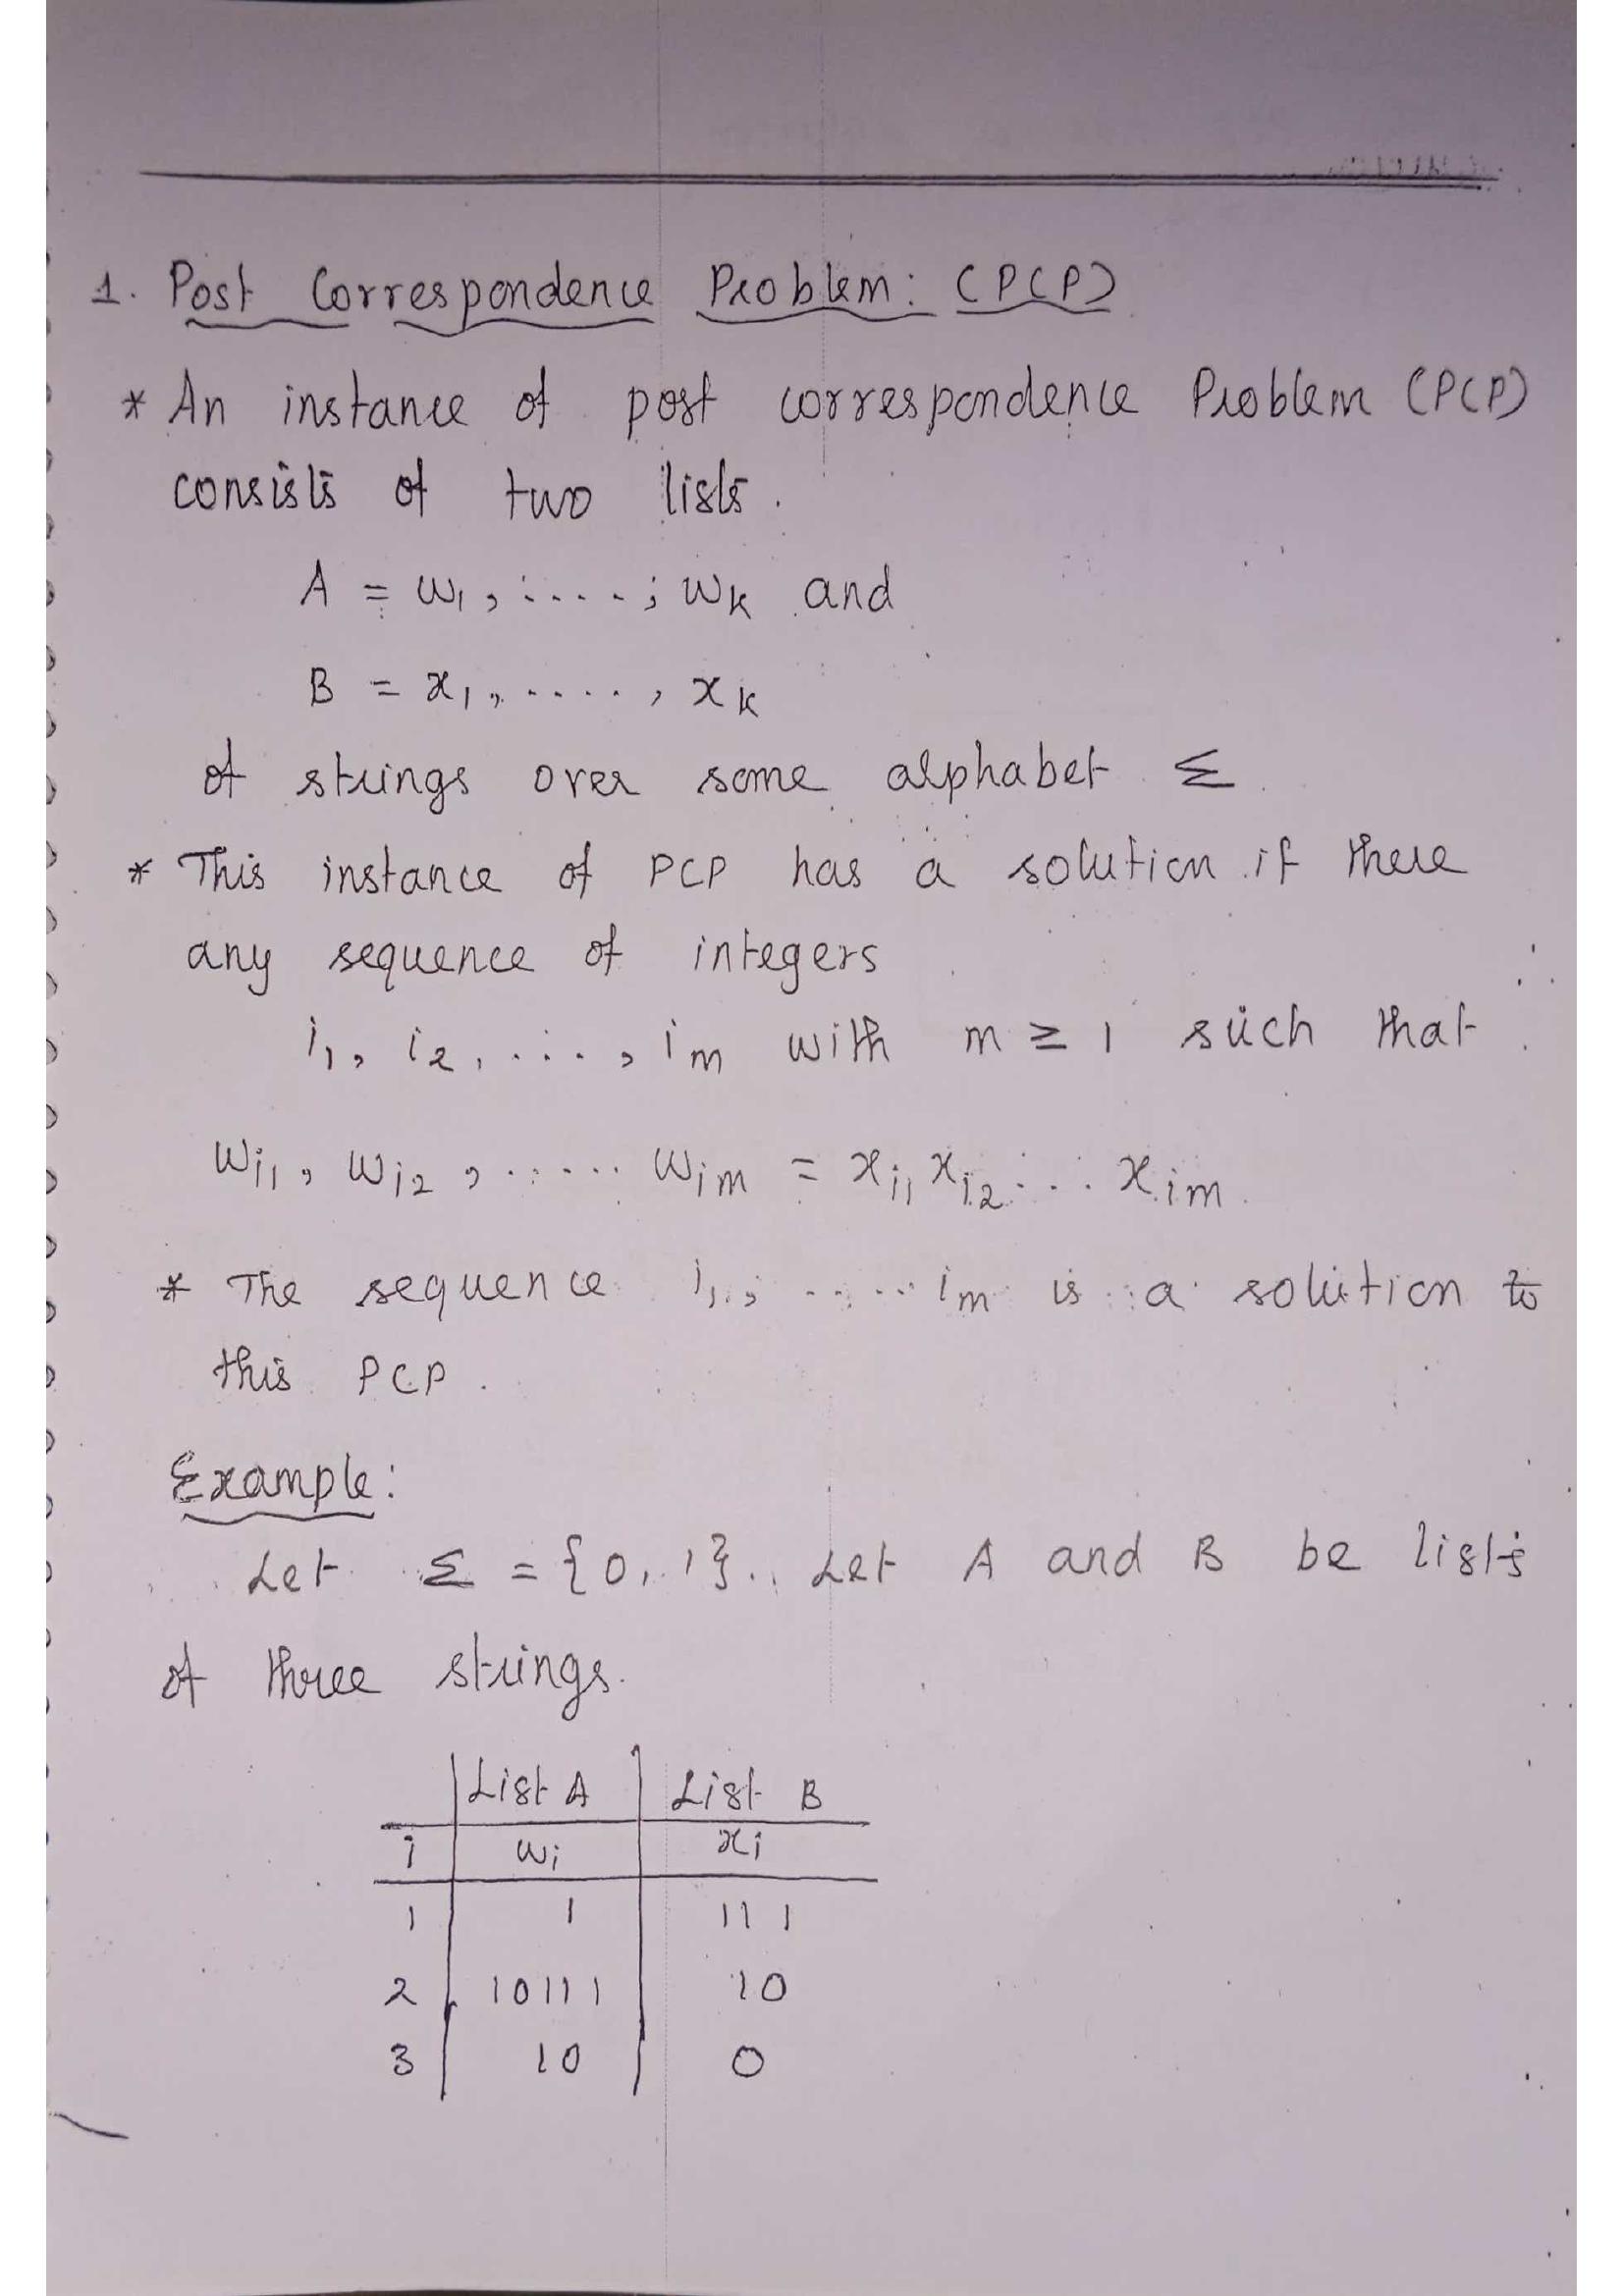 1. Post Correspondence Problem: (PCP)
* An instance of post correspondence Problem (PCP)
consists of two lists.
A = w₁, ....., wₖ and
B = x₁, ....., xₖ
of strings over some alphabet Σ
* This instance of PCP has a solution if there
any sequence of integers
i₁, i₂, ...., iₘ with m ≥ 1 such that
wi₁, wi₂, ..... wiₘ = xi₁ xi₂ ... xiₘ
* The sequence i₁, ..... iₘ is a solution to
this PCP.
Example:
Let Σ = {0, 1}. Let A and B be lists
of three strings.
List A List B
i wi xi
1 1 111
2 10111 10
3 10 0